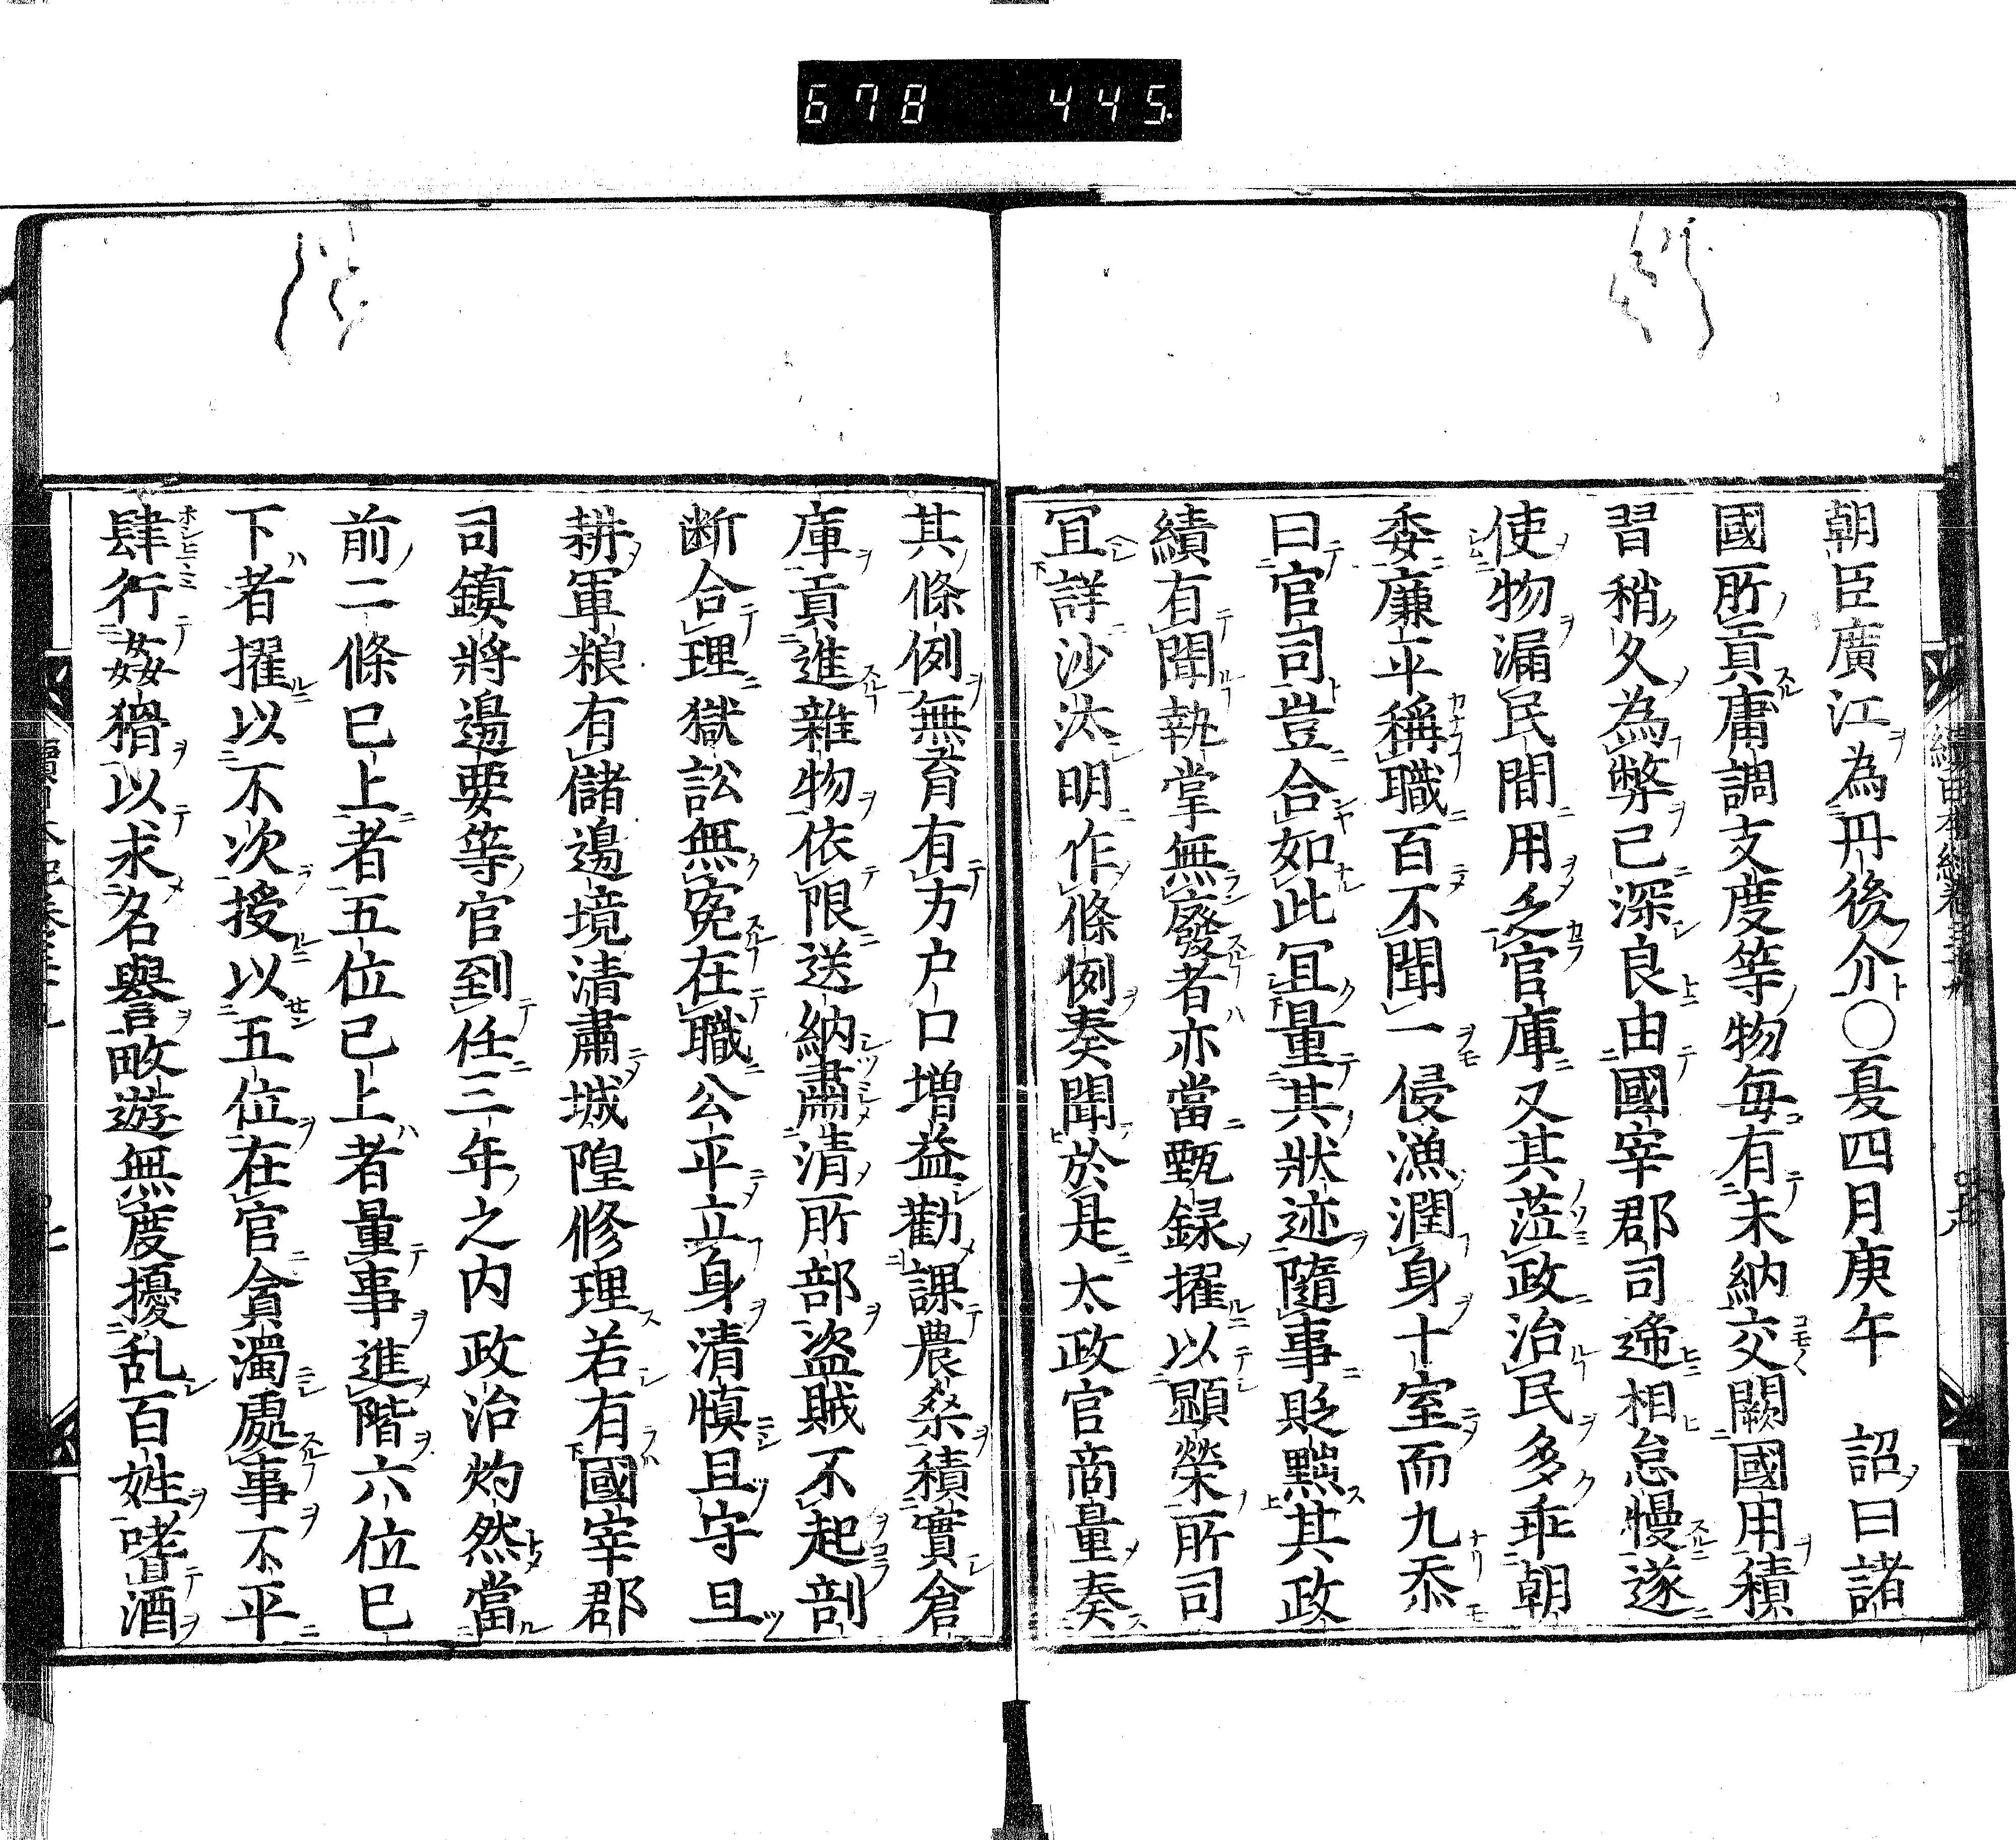 678 445
朝臣廣江為丹後介○夏四月庚午 詔曰諸
國所貢庸調支度等物毎有未納交闕國用積
習稍久為弊已深良由國宰郡司遞相怠慢遂
使物漏民間用乏官庫又其莅政治民多乖朝
委廉平稱職百不聞一侵漁潤身十室而九忝
曰官司豈合如此冝量其狀迹隨事貶黜其政
績有聞執掌無廢者亦當甄録擢以顯榮所司
冝詳沙汰明作條例奏聞於是太政官商量奏
其條例無育有方户口増益勸課農桒積實倉
庫貢進雜物依限送納肅清所部盗賊不起剖
断合理獄訟無寃在職公平立身清慎且守且
耕軍粮有儲邊境清肅城隍修理若有國宰郡
司鎮將邊要等官到任三年之内政治灼然當
前二條已上者五位已上者量事進階六位已
下者擢以不次授以五位在官貪濁處事不平
肆行姦猾以求名譽畋遊無度擾乱百姓嗜酒